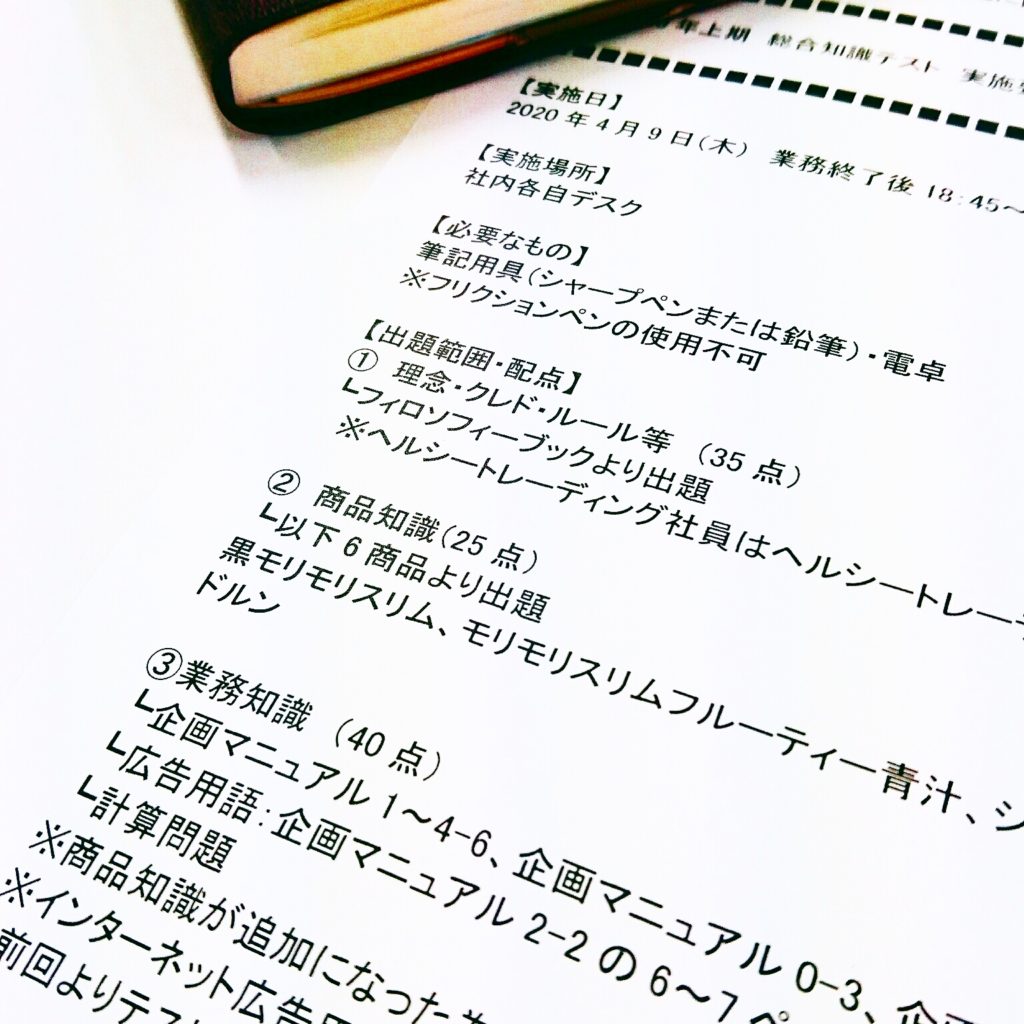 年上期 総合知識テスト 実施
【実施日】
2020年4月9日(木) 業務終了後 18:45～
【実施場所】
社内各自デスク
【必要なもの】
筆記用具(シャープペンまたは鉛筆)・電卓
※フリクションペンの使用不可
【出題範囲・配点】
① 理念・クレド・ルール等 (35点)
┗フィロソフィーブックより出題
※ヘルシートレーディング社員はヘルシートレー
② 商品知識(25点)
┗以下6商品より出題
黒モリモリスリム、モリモリスリムフルーティー青汁、シ
ドルン
③業務知識 (40点)
┗企画マニュアル1～4-6、企画マニュアル0-3、企
┗広告用語:企画マニュアル2-2の6～7ペ
┗計算問題
※商品知識が追加になった
※インターネット広告
前回よりテス